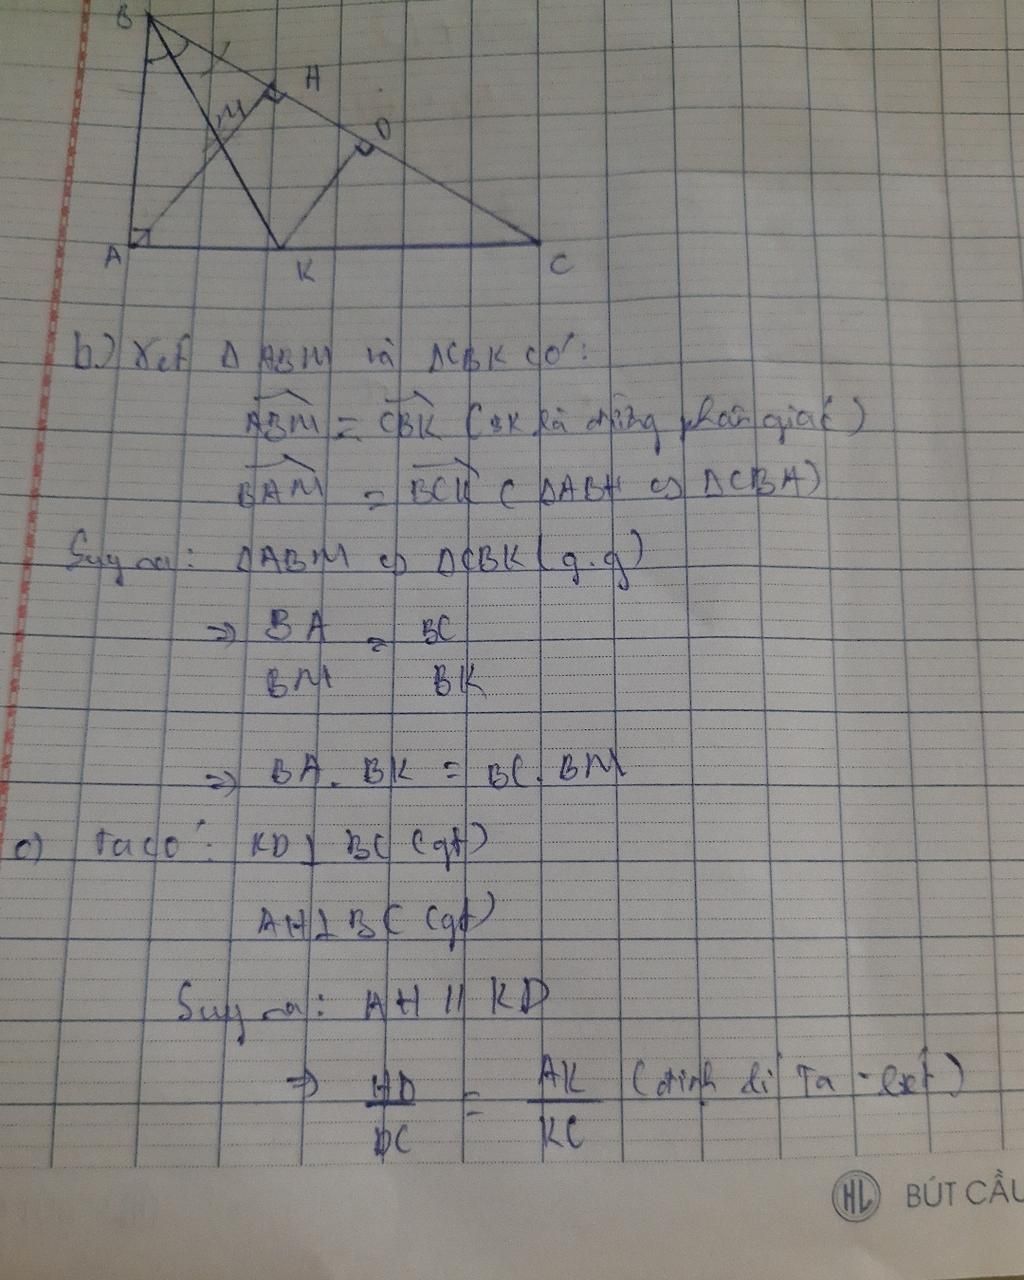 B
H
M
D
A
K
C
b) Xét Δ ABM và ΔCBK có:
ABM = CBK (BK là đường phân giác)
BAM = BCK (ΔABH ∽ ΔCBA)
Suy ra: ΔABM ∽ ΔCBK (g.g)
=> BA = BC
BM BK
=> BA. BK = BC. BM
c) Ta có: KD ⊥ BC (gt)
AH ⊥ BC (gt)
Suy ra: AH // KD
=> HD/DC = AK/KC (định lí Ta-lét)
HL BÚT CẦU